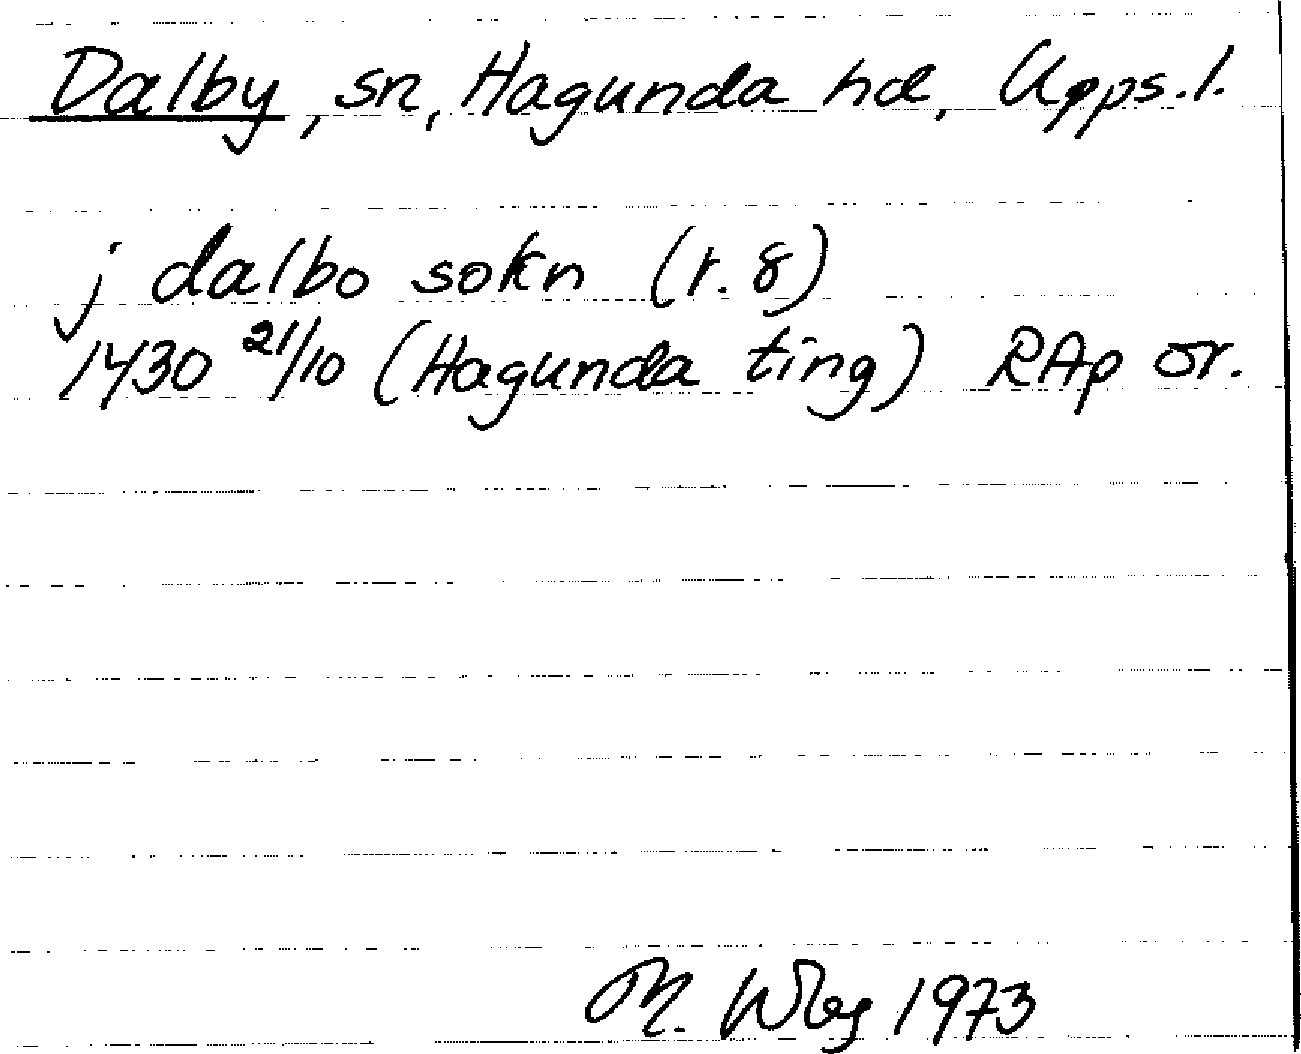 Dalby, sn, Hagunda hd, Upps.l.
j dalbo sokn (r. 8)
1430 21/10 (Hagunda ting) RAp or.
M. Wbg 1973